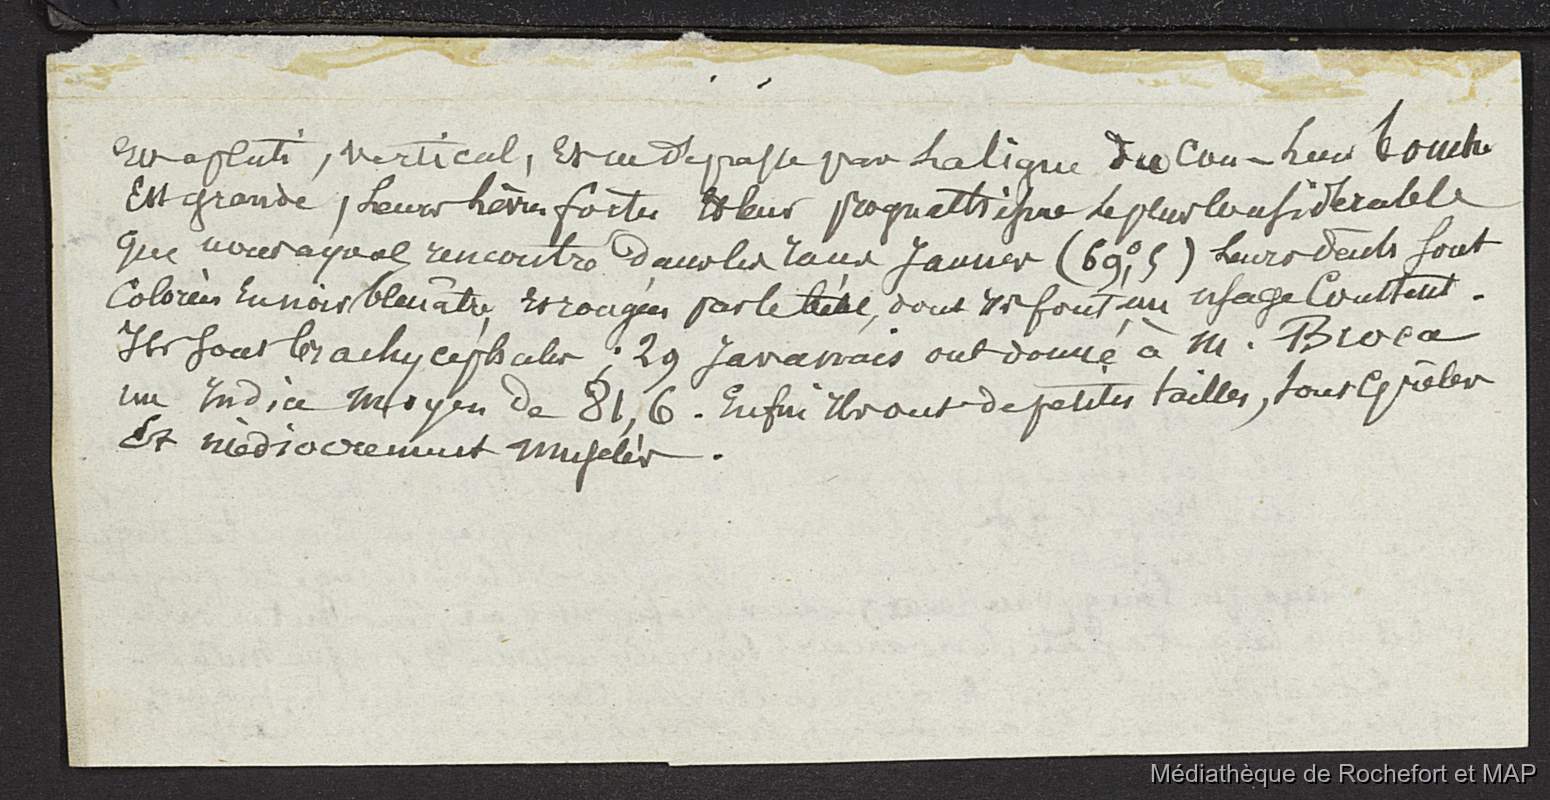 est aplati, vertical, et ne dépasse pas la ligne du cou – leur bouche
Est grande, leurs lèvres fortes et leur prognathisme le plus considérable
que nous ayons rencontré dans les races jaunes (69°,5) leurs dents sont
colorées en noir bleuâtre, et rongées par le bétel, dont ils font un usage constant.
Ils sont brachycéphales ; 29 Javanais ont donné à M. Broca
un Indice moyen de 81,6. Enfin ils ont de petites tailles, sont grêles
Et médiocrement musclés.
Médiathèque de Rochefort et MAP